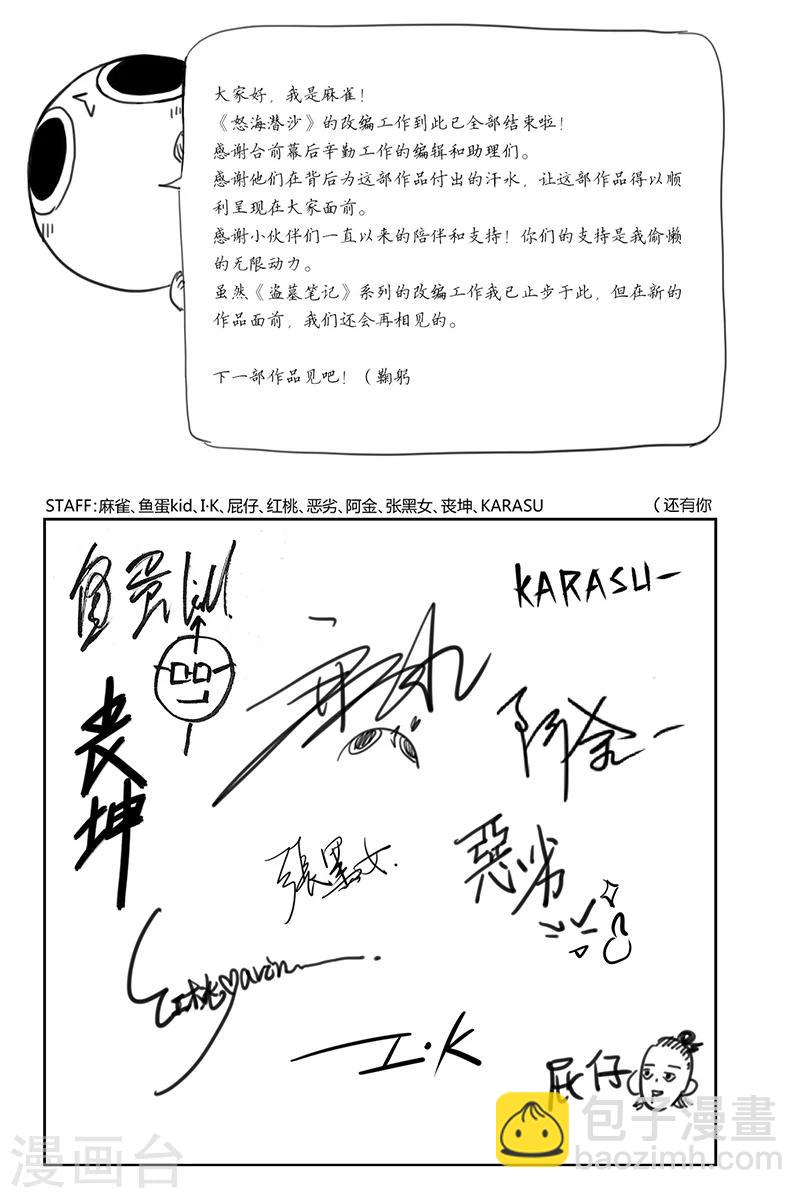 大家好，我是麻雀！
《怒海潜沙》的改编工作到此已全部结束啦！
感谢台前幕后辛勤工作的编辑和助理们。
感谢他们在背后为这部作品付出的汗水，让这部作品得以顺
利呈现在大家面前。
感谢小伙伴们一直以来的陪伴和支持！你们的支持是我偷懒
的无限动力。
虽然《盗墓笔记》系列的改编工作我已止步于此，但在新的
作品面前，我们还会再相见的。
下一部作品见吧！（鞠躬
STAFF:麻雀、鱼蛋kid、I·K、屁仔、红桃、恶劣、阿金、张黑女、丧坤、KARASU （还有你
鱼蛋kid
KARASU
丧坤
阿金
張黑女.
惡劣
红桃
I·K
屁仔
包子漫畫
baozimh.com
漫画台